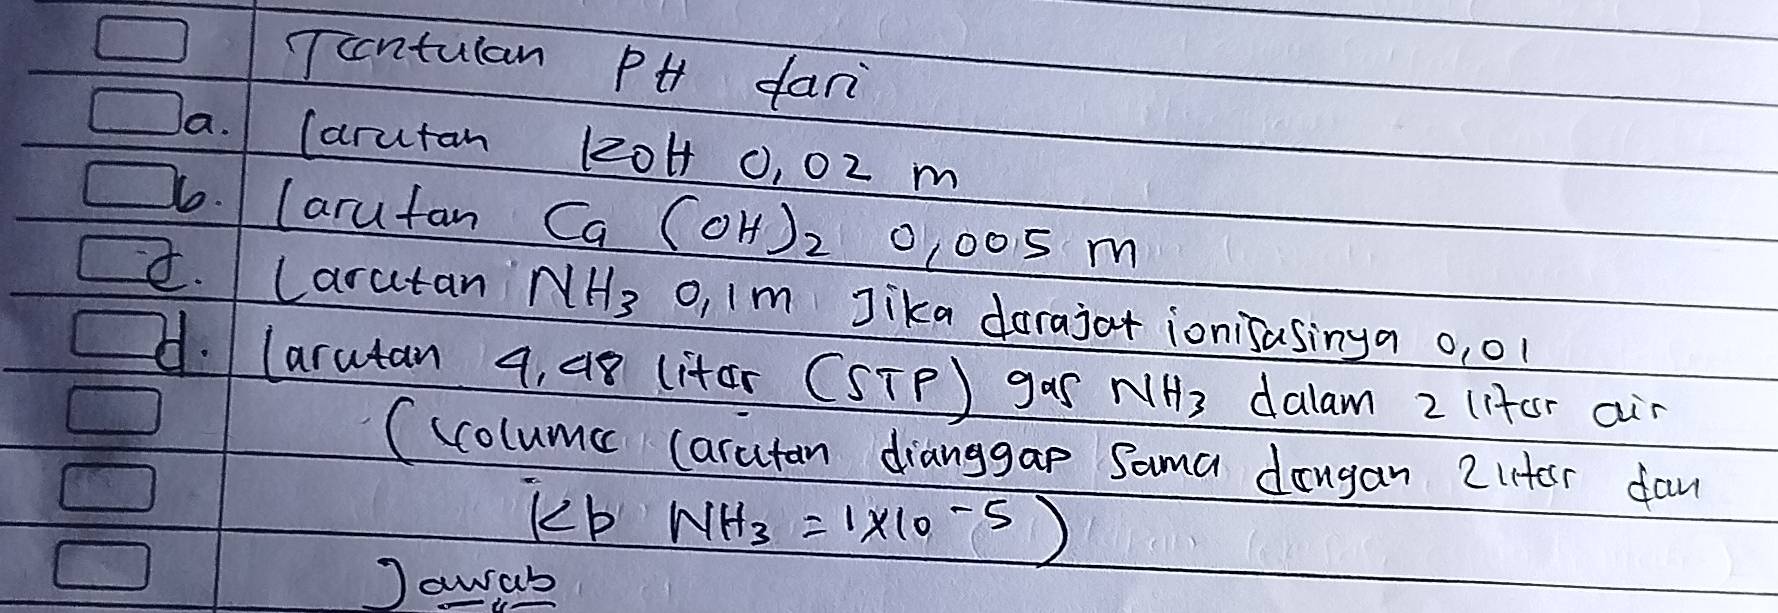 Tentukan PH dari
a. larutan KOH 0,02 m
b. larutan Ca (OH)2 0,005 m
c. Larutan NH3 0,1 m Jika darajat ionisasinya 0,01
d. larutan 4,48 liter (STP) gas NH3 dalam 2 liter air
(volume larutan dianggap sama dengan 2 liter dan
Kb NH3 = 1x10-5)
Jawab